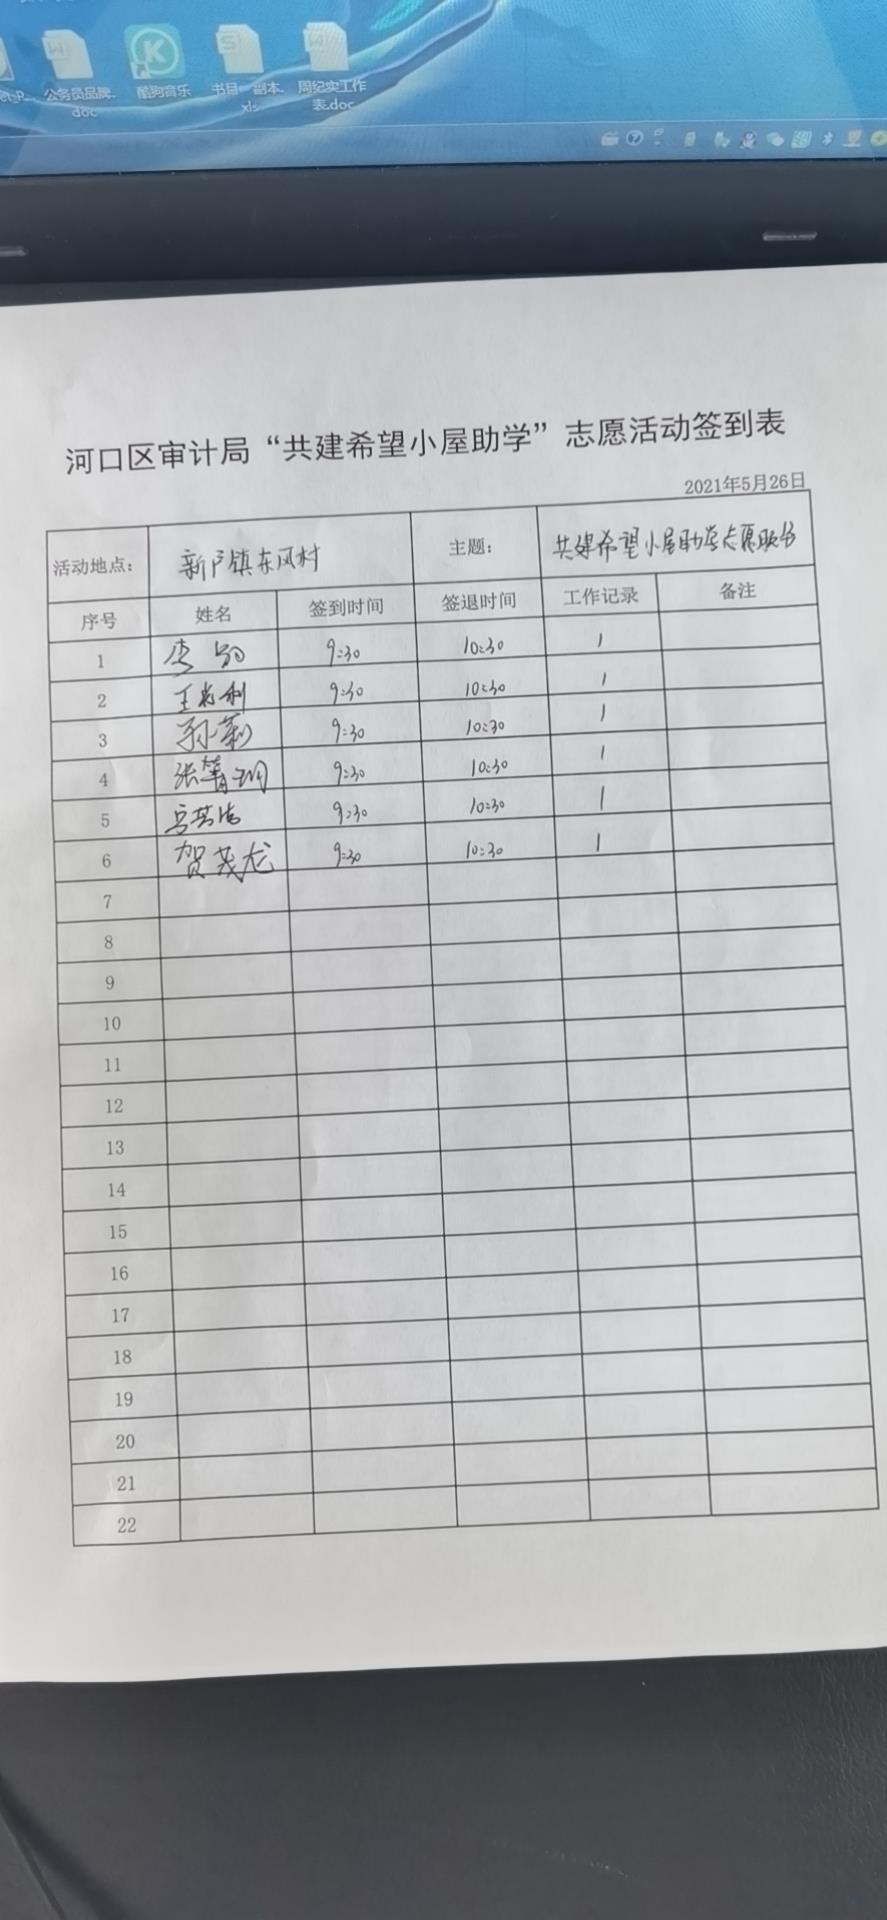 公务员品牌.
doc
酷狗音乐
书目 - 副本.
xls
周纪实工作
表.doc
河口区审计局“共建希望小屋助学”志愿活动签到表
2021年5月26日
活动地点： 新户镇东风村 主题： 共建希望小屋助学志愿服务
序号 姓名 签到时间 签退时间 工作记录 备注
1 李 9:30 10:30 1
2 王 利 9:30 10:30 1
3 孙莉 9:30 10:30 1
4 张箐 9:30 10:30 1
5 9:30 10:30 1
6 贺茂龙 9:30 10:30 1
7
8
9
10
11
12
13
14
15
16
17
18
19
20
21
22